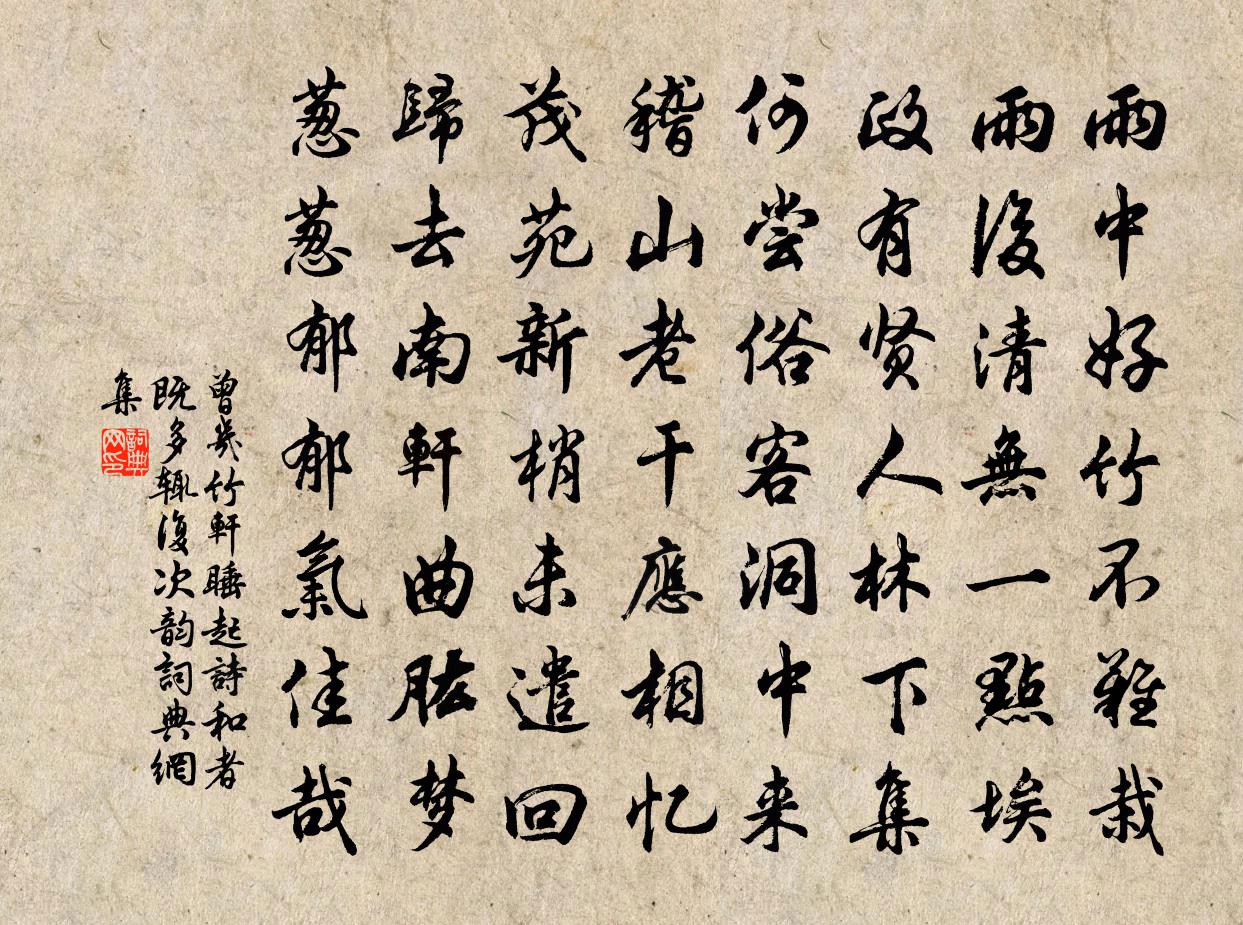 雨中好竹不難栽
雨後清無一點埃
政有贤人林下集
何尝俗客洞中来
稽山老干應相忆
茂苑新梢未遣回
歸去南軒曲肱梦
葱葱郁郁氣佳哉
曾幾竹軒睡起詩和者
既多辄復次韵詞典網
集
詞典網印